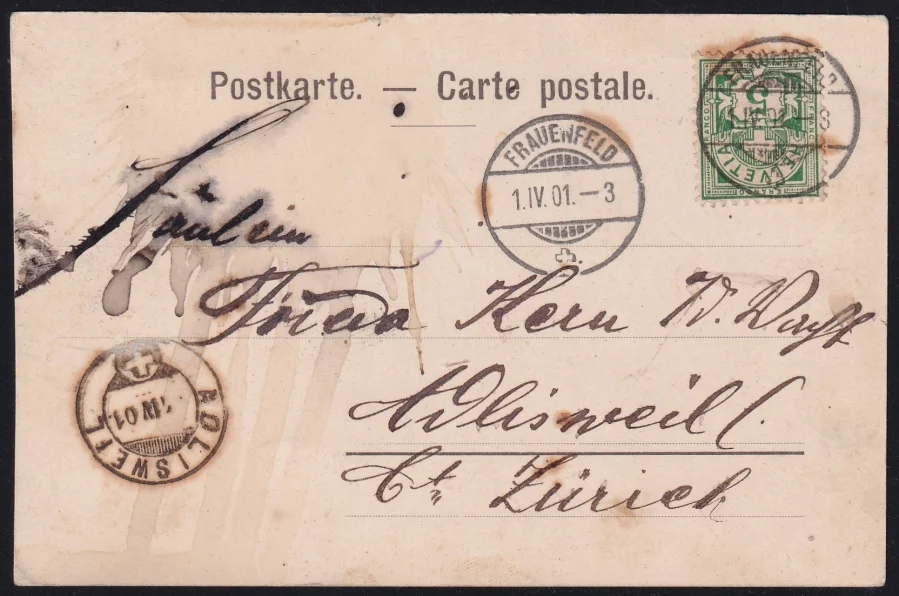 Postkarte. — Carte postale.
FRAUENFELD
1.IV.01.-3
5
HELVETIA
Fräulein
Frieda Kern W.
Adlisweil (
Ct. Zürich
ADLISWEIL
IV.01.